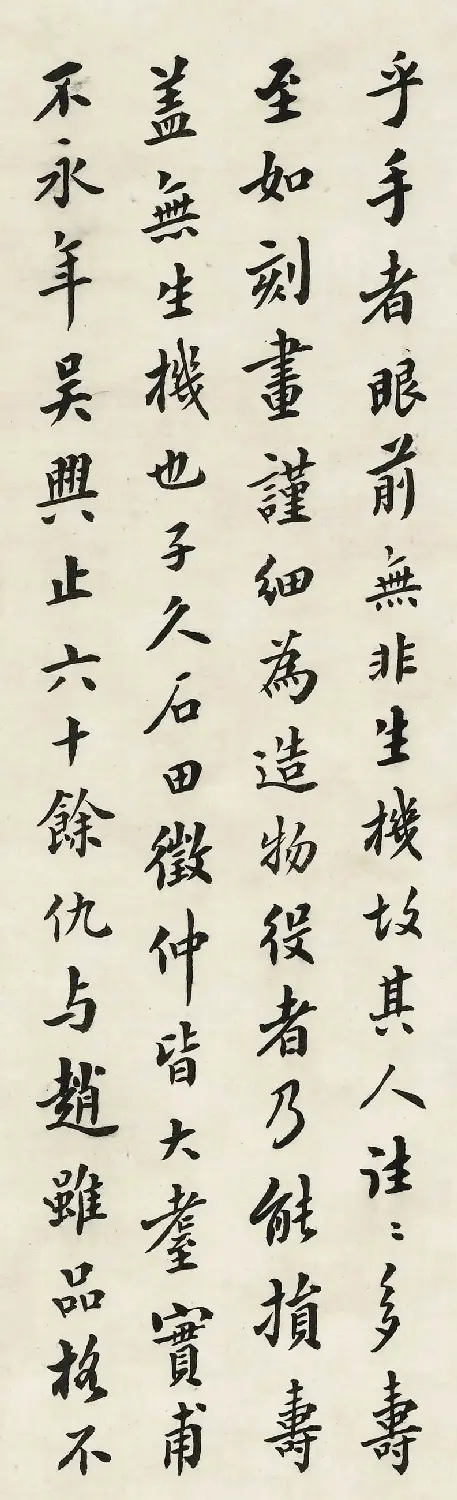 乎手者眼前無非生機故其人往々多壽
至如刻畫謹細為造物役者乃能損壽
蓋無生機也子久石田徵仲皆大耋實甫
不永年吳興止六十餘仇与趙雖品格不